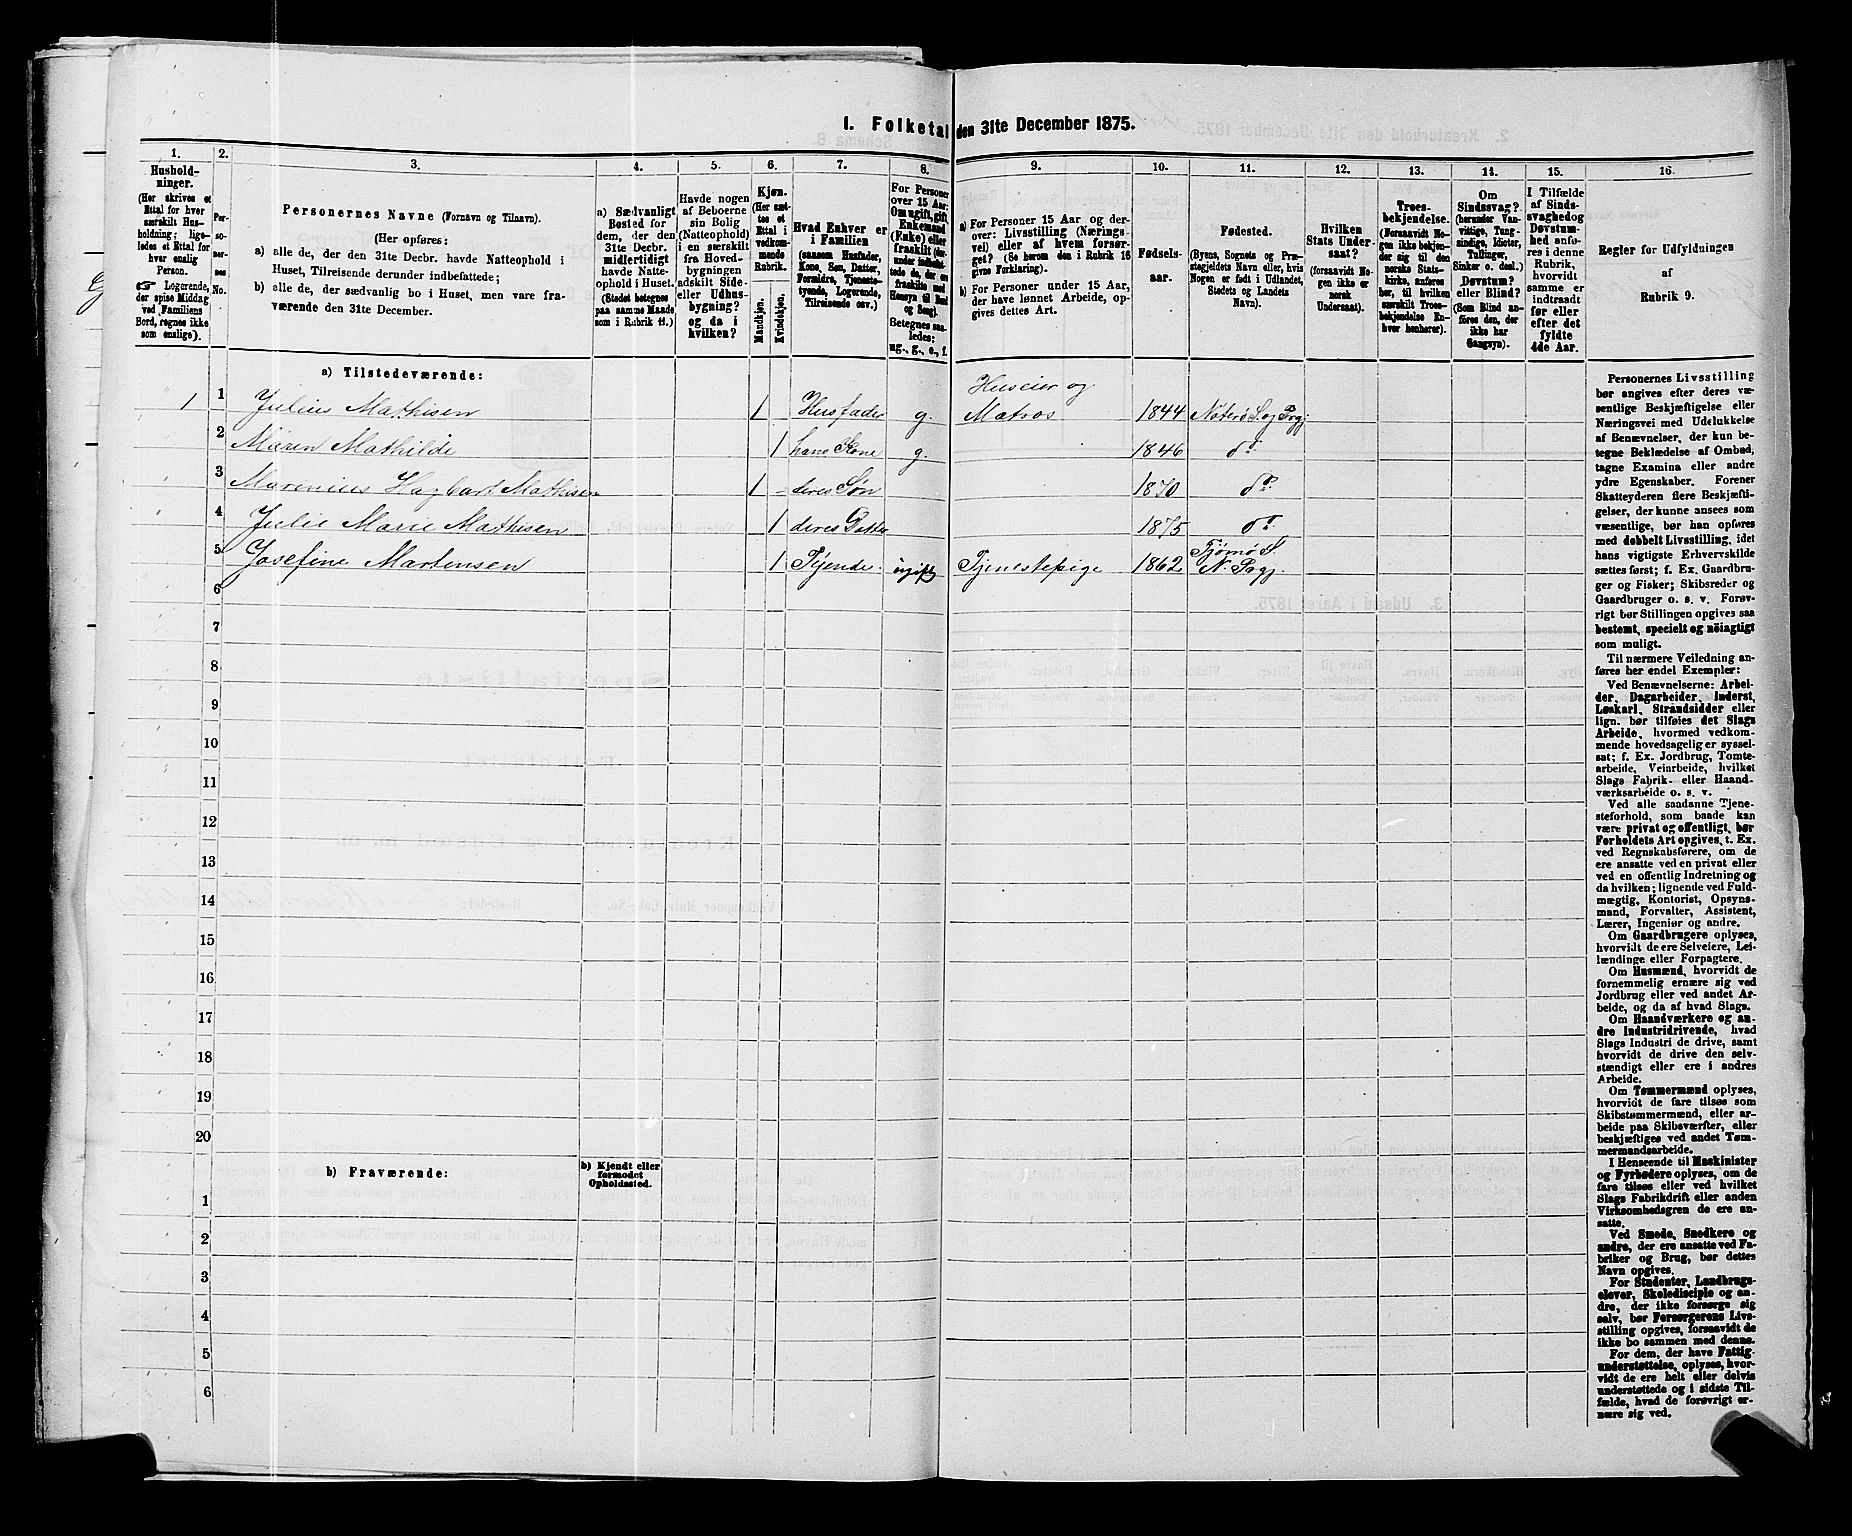 1. Folketal den 31te December 1875.
1. 2. 3. 4. 5. 6. 7. 8. 9. 10. 11. 12. 13. 14. 15. 16.
Hushold-
ninger.
(Her skrives et
Ettal for hver
særskilt Hus-
holdning; lige-
ledes et Ettal for
hver enslig
Person.
☞ Logerende,
der spise Middag
ved Familiens
Bord, regnes ikke
som enslige).
Per-
so-
ner-
nes
No.
Personernes Navne (Fornavn og Tilnavn).
(Her opføres:
a) alle de, der den 31te Decbr. havde Natteophold i
Huset, Tilreisende derunder indbefattede;
b) alle de, der sædvanlig bo i Huset, men vare fra-
værende den 31te December.
a) Sædvanligt
Bosted for
dem, der den
31te Decbr.
midlertidigt
havde Natte-
ophold i Huset.
(Stedet betegnes
paa samme Maade
som i Rubrik 11.)
Havde nogen
af Beboerne
sin Bolig
(Natteophold)
i en særskilt
fra Hoved-
bygningen
adskilt Side-
eller Udhus-
bygning?
og da i
hvilken?
Kjøn.
(Her sæt-
tes et
Ettal i
vedkom-
mende
Rubrik.
Mandkjøn.
Kvindekjøn.
Hvad Enhver er
i Familien
(saasom Husfader,
Kone, Søn, Datter,
Forældre, Tjeneste-
tyende, Logerende,
Tilreisende osv.)
For Personer
over 15 Aar:
Om ugift, gift,
Enkemand
(Enke) eller
fraskilt (der-
under indbefat-
tede de, der ere
fraskilte med
Hensyn til Bord
og Seng).
Betegnes saa-
ledes:
ug., g., e., f.
a) For Personer 15 Aar og der-
over: Livsstilling (Nærings-
vei) eller af hvem forsør-
get? (Se herom den i Rubrik 16
givne Forklaring).
b) For Personer under 15 Aar,
der have lønnet Arbeide, op-
gives dettes Art.
Fødsels-
aar.
Fødested.
(Byens, Sognets og Præ-
stegjeldets Navn eller, hvis
Nogen er født i Udlandet,
Stedets og Landets
Navn).
Hvilken
Stats Under-
saat?
(forsaavidt No-
gen ikke er
norsk
Undersaat).
Troes-
bekjendelse.
(Forsaavidt No-
gen ikke bekjen-
der sig til den
norske Stats-
kirke, anføres
her, til hvilken
særskilt Troes-
bekjendelse En-
hver henhører).
Om
Sindssvag?
(herunder Van-
vittige, Tung-
sindige, Idioter,
Tullinger,
Sinker o. desl.)
Døvstum?
eller Blind?
(Som Blind an-
føres den, der
ikke har
Gangsyn).
I Tilfælde
af Sinds-
svaghed og
Døvstum-
hed anfø-
res i denne
Rubrik,
hvorvidt
samme er
indtraadt
før eller
efter det
fyldte
4de Aar.
Regler for Udfyldningen
af
Rubrik 9.
a) Tilstedeværende:
1 1 Julius Mathisen 1 Husfader g. Huseier og
Matros 1844 Nøterø S. og Prgj.
2 Maren Mathilde 1 hans Kone g. 1846 do.
3 Marenius Hagbart Mathisen 1 deres Søn 1870 do.
4 Julie Marie Mathisen 1 deres Datter 1875 do.
5 Josefine Martensen 1 Tyende. ugift Tjenestepige 1862 Tjømø S.
N. Prgj.
6
7
8
9
10
11
12
13
14
15
16
17
18
19
20
b) Fraværende:
b) Kjendt eller
formodet
Opholdssted.
1
2
3
4
5
6
Personernes Livsstilling
bør angives efter deres væ-
sentlige Beskjæftigelse eller
Næringsvei med Udelukkelse
af Benævnelser, der kun be-
tegne Beklædelse af Ombud,
tagne Examina eller andre
ydre Egenskaber. Forener
Skatteyderen flere Beskjæfti-
gelser, der kunne ansees som
væsentlige, bør han opføres
med dobbelt Livsstilling, idet
hans vigtigste Erhvervskilde
sættes først; f. Ex. Gaardbru-
ger og Fisker; Skibsreder og
Gaardbruger o. s. v. Forøv-
rigt bør Stillingen opgives saa
bestemt, specielt og nöiagtigt
som muligt.
Til nærmere Veiledning an-
føres her endel Exempler:
Ved Benævnelserne: Arbei-
der, Dagarbeider, Inderst,
Løskarl, Strandsidder eller
lign. bør tilføies det Slags
Arbeide, hvormed vedkom-
mende hovedsagelig er syssel-
sat; f. Ex. Jordbrug, Tomte-
arbeide, Veiarbeide, hvilket
Slags Fabrik- eller Haand-
værksarbeide o. s. v.
Ved alle saadanne Tjene-
steforhold, som baade kan
være privat og offentligt, bør
Forholdets Art opgives, t. Ex.
ved Regnskabsførere, om de
ere ansatte ved en privat eller
ved en offentlig Indretning og
da hvilken; lignende ved Fuld-
mægtig, Kontorist, Opsyns-
mand, Forvalter, Assistent,
Lærer, Ingeniør og andre.
Om Gaardbrugere oplyses,
hvorvidt de ere Selveiere, Lei-
lændinge eller Forpagtere.
Om Husmænd, hvorvidt de
fornemmelig ernære sig ved
Jordbrug eller ved andet Ar-
beide, og da af hvad Slags.
Om Haandværkere og an-
dre Industridrivende, hvad
Slags Industri de drive, samt
hvorvidt de drive den selv-
stændigt eller ere i andres
Arbeide.
Om Tømmermænd oplyses,
hvorvidt de fare tilsøs som
Skibstømmermænd, eller ar-
beide paa Skibsværfter, eller
beskjæftiges ved andet Tøm-
mermandsarbeide.
I Henseende til Maskinister
og Fyrbødere oplyses, om de
fare tilsøs eller ved hvilket
Slags Fabrikdrift eller anden
Virksomhedsgren de ere an-
satte.
Ved Smede, Snedkere og
andre, der ere ansatte ved Fa-
briker og Brug, bør dettes
Navn opgives.
For Studenter, Landbrugs-
elever, Skoledisciple og an-
dre, der ikke forsørge sig
selv, bør Forsørgerens Livs-
stilling opgives, forsaavidt de
ikke bo sammen med denne.
For dem, der have Fattig-
understøttelse, oplyses, hvor-
vidt de ere helt eller delvis
understøttede og i sidste Til-
fælde, hvad de forøvrigt er-
nære sig ved.